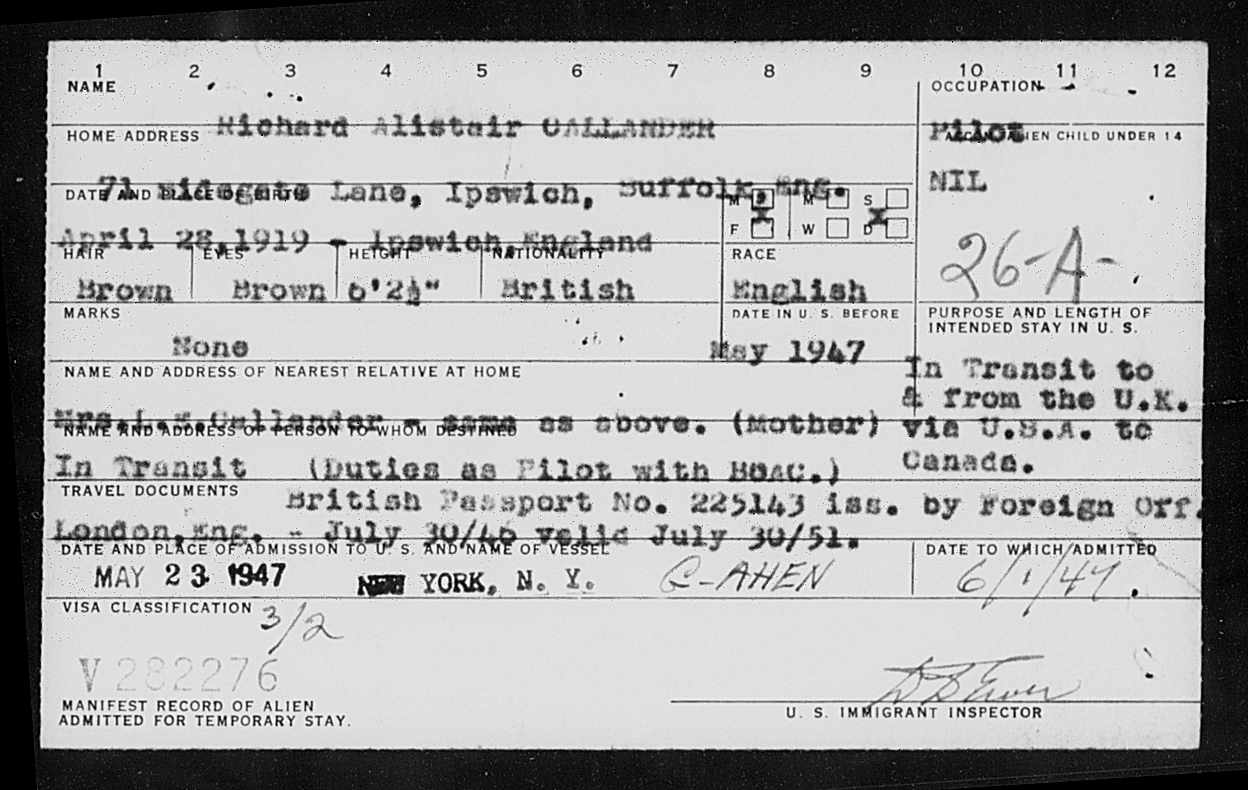 1 2 3 4 5 6 7 8 9 10 11 12
NAME OCCUPATION
Richard Alistair CALLANDER Pilot
HOME ADDRESS ALIEN CHILD UNDER 14
71 Sidegate Lane, Ipswich, Suffolk, Eng. NIL
DATE AND PLACE OF BIRTH M F M W S D
April 28,1919 - Ipswich,England X X
HAIR EYES HEIGHT NATIONALITY RACE 26-A-
Brown Brown 6'2½" British English
MARKS DATE IN U. S. BEFORE PURPOSE AND LENGTH OF
INTENDED STAY IN U. S.
None May 1947 In Transit to
NAME AND ADDRESS OF NEAREST RELATIVE AT HOME
& from the U.K.
Mrs. Callander - same as above. (Mother) via U.S.A. to
NAME AND ADDRESS OF PERSON TO WHOM DESTINED
In Transit (Duties as Pilot with BOAC.) Canada.
TRAVEL DOCUMENTS British Passport No. 225143 iss. by Foreign Off.
London,Eng. - July 30/46 valid July 30/51.
DATE AND PLACE OF ADMISSION TO U. S. AND NAME OF VESSEL DATE TO WHICH ADMITTED
MAY 23 1947 NEW YORK, N. Y. G-AHEN 6/1/47
VISA CLASSIFICATION 3/2
V 282276
MANIFEST RECORD OF ALIEN
ADMITTED FOR TEMPORARY STAY.
U. S. IMMIGRANT INSPECTOR